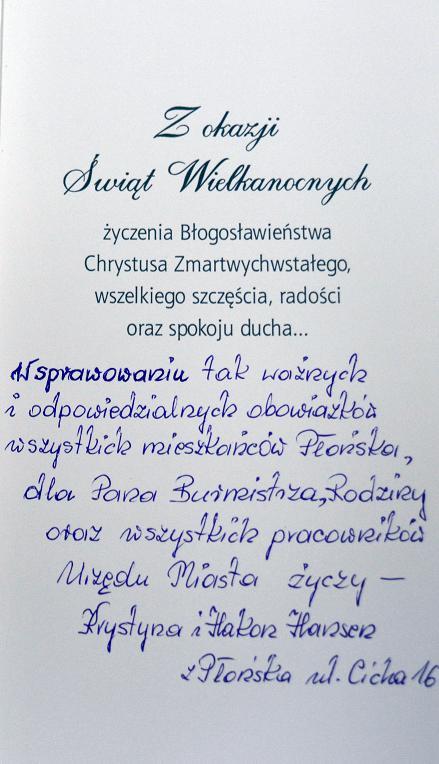 Z okazji
Świąt Wielkanocnych
życzenia Błogosławieństwa
Chrystusa Zmartwychwstałego,
wszelkiego szczęścia, radości
oraz spokoju ducha...
W sprawowaniu tak ważnych
i odpowiedzialnych obowiązków
wszystkich mieszkańców Płońska,
dla Pana Burmistrza, Rodziny
oraz wszystkich pracowników
Urzędu Miasta życzy —
Krystyna i Hakon Hansen
z Płońska ul. Cicha 16